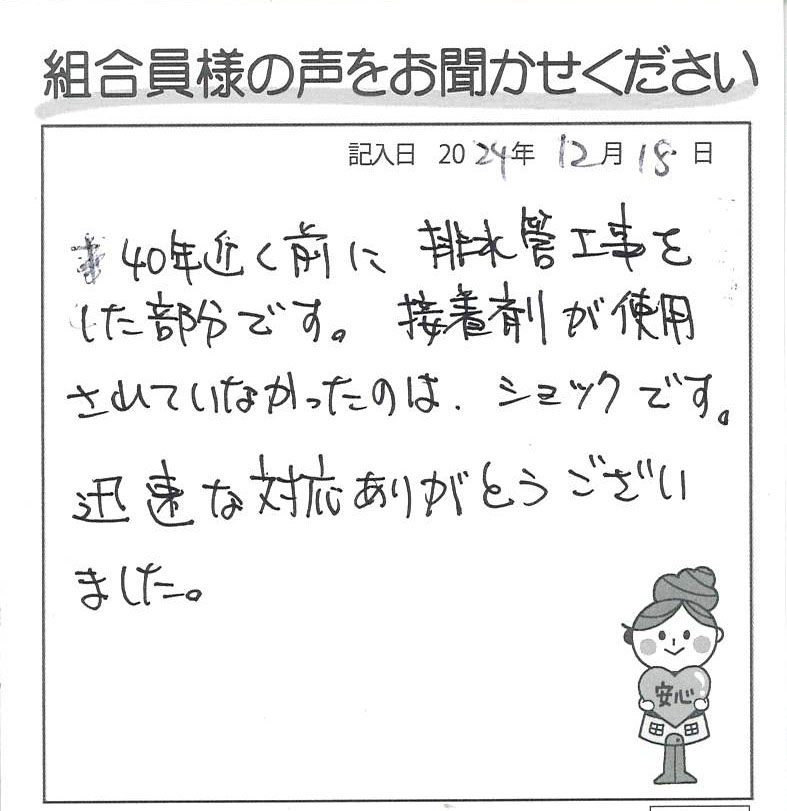 組合員様の声をお聞かせください
記入日 2024年 12月 18日
40年近く前に 排水管工事を
した部分です。接着剤が使用
されていなかったのは、ショックです。
迅速な対応ありがとうござい
ました。
安心